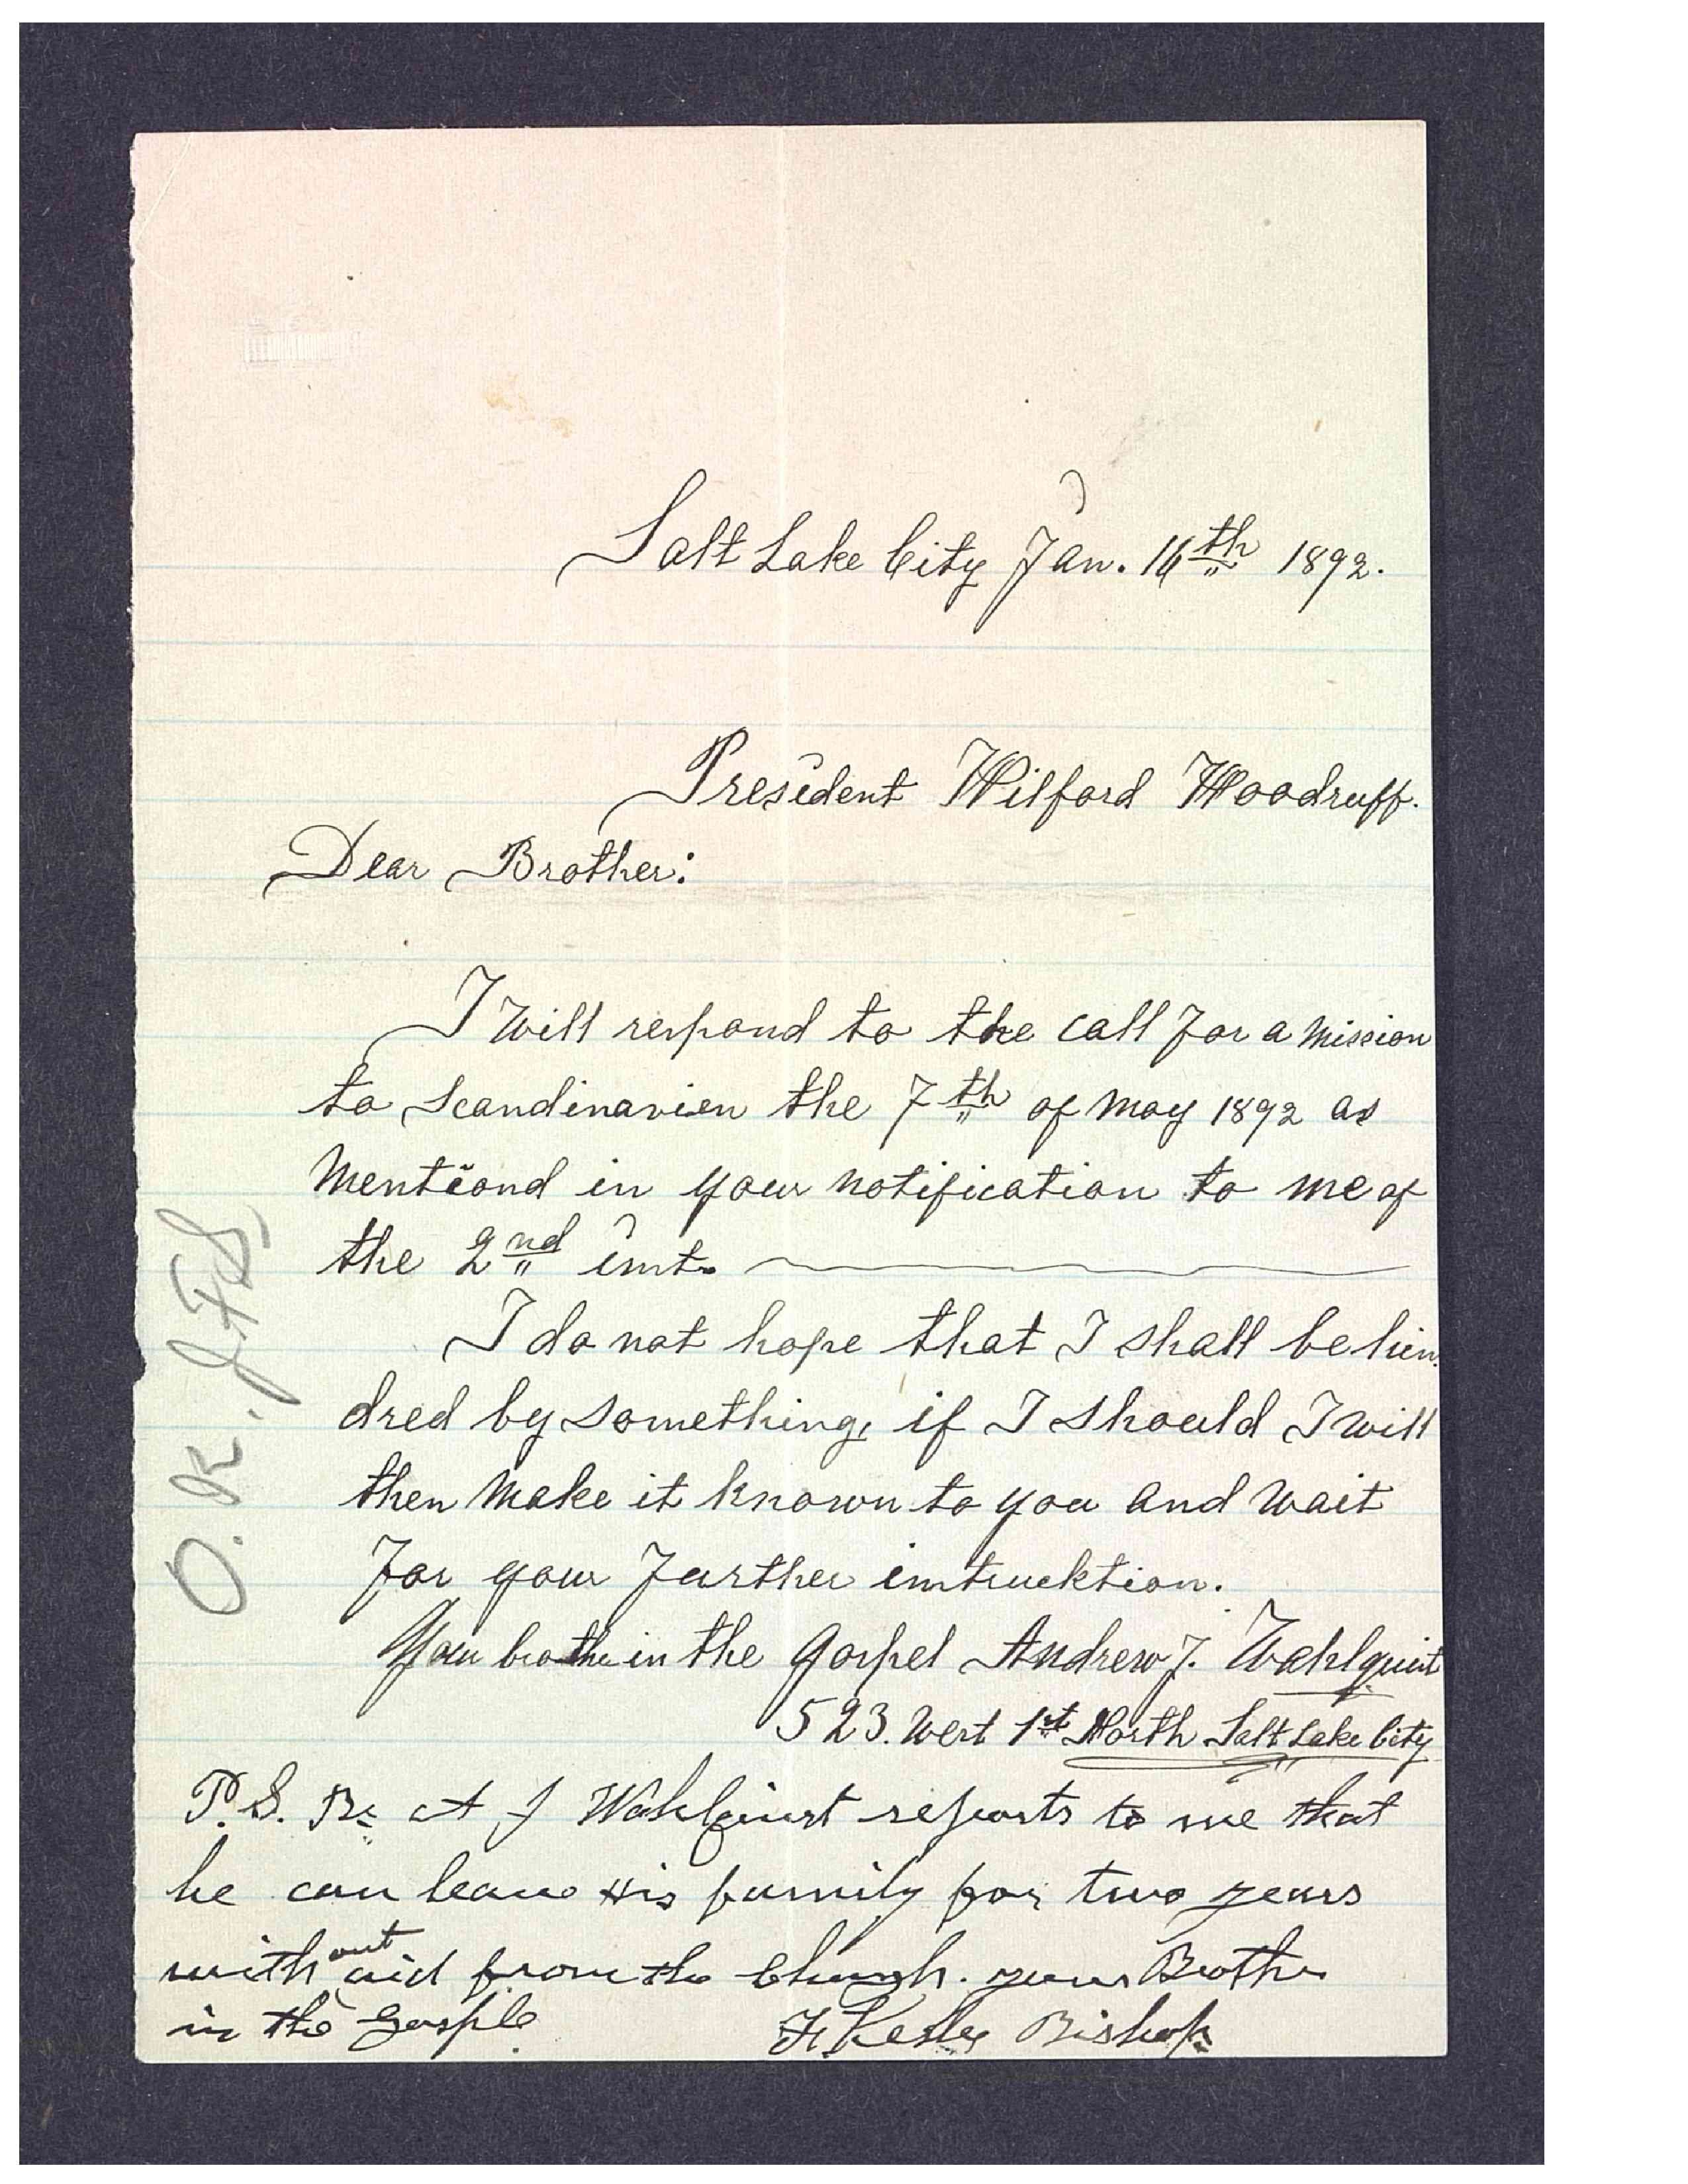 Salt Lake City Jan. 16th 1892.
President Wilford Woodruff.
Dear Brother:
I will respond to the call for a mission
to Scandinavien the 7th of May 1892 as
mentiond in your notification to me of
the 2nd inst.
I do not hope that I shall be hin-
dred by something, if I should I will
then make it known to you and wait
for your further instrucktion.
Your brother in the Gospel Andrew J. Wahlquist
523. West 1st North Salt Lake City
O.K. J.F.S.
P.S. Br A J Wahlquist reports to me that
he can leave His family for two years
without aid from the Church. your Brother
in the Gosple
F. Kesler Bishop